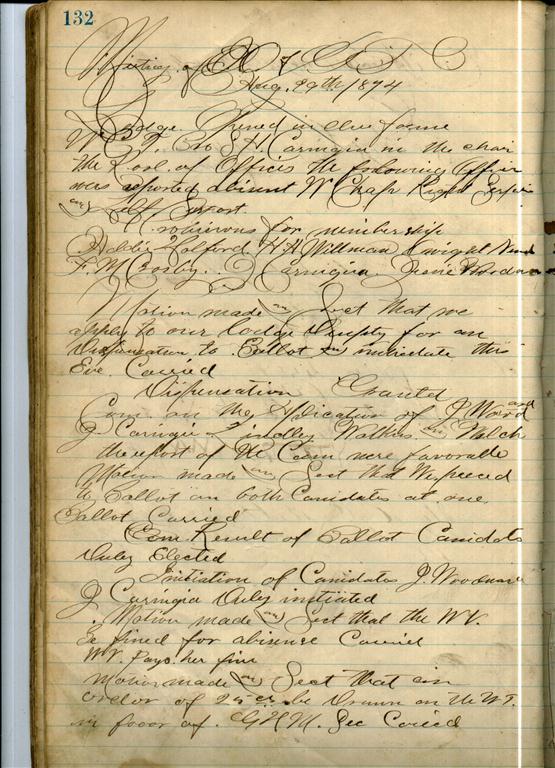 132
Meeting of
Aug. 29th/1894
Lodge Opened in due forme
W. Bro J. A. Carnigia in the chair
the Rool of Offices the following Officer
was reported absent W Chap Right
and Left Suport.
for membership
Addie Holford H. H. Willman Dwight
F. M. Cosby. Carnigia. Jessie
Motion made and Sect that we
apply to our lodge Deupty for an
Dispensation to Ballot and inniciate this
Eve. Carried
Dispensation Granted
Com. on the Application of J Ward and
J Carnigia Findley Walkins and Welch
the report of the Com were favorable
Motion made and Sect that We proceed
to Ballot on both Canidates at one
Ballot Carried
Com Result of Ballot Canidats
Duley Elected
Initiation of Canidates J. Woodward
J Carnigia Duley initiated
Motion made and Sect that the W V.
be fined for absence Carried
W V. Pays her fine
Motion made and Sect that an
order of 25 cs. be Drawn on the W T.
in favor of G H M. Sec Caried